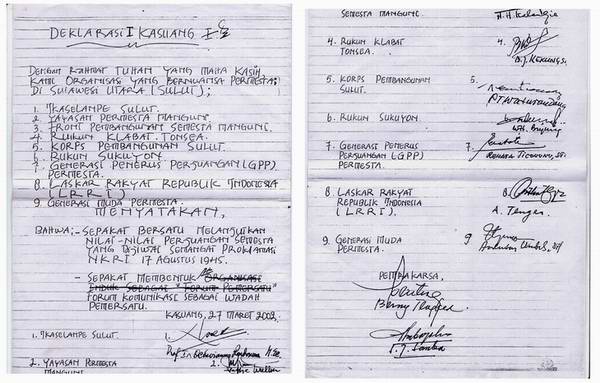 DEKLARASI I KASUANG
DENGAN RAHMAT TUHAN YANG MAHA KASIH,
KAMI ORGANISASI YANG BERNUANSA PERMESTA;
DI SULAWESI UTARA (SULUT);
1. IKASELAMPE SULUT.
2. YAYASAN PERMESTA MANGUNI.
3. FRONT PEMBANGUNAN SEMESTA MANGUNI.
4. RUKUN KLABAT TONSEA.
5. KORPS PEMBANGUNAN SULUT.
6. RUKUN SUKUYON
7. GENERASI PENERUS PERJUANGAN (GPP)
PERMESTA.
8. LASKAR RAKYAT REPUBLIK INDONESIA
(LRRI)
9. GENERASI MUDA PERMESTA.
MENYATAKAN,
BAHWA; - SEPAKAT BERSATU MELANJUTKAN
NILAI-NILAI PERJUANGAN SEMESTA
YANG DIJIWAI SEMANGAT PROKLAMASI
NKRI 17 AGUSTUS 1945.
- SEPAKAT MEMBENTUK ORGANISASI
INDUK SEBAGAI "FORUM PEMERSATU"
FORUM KOMUNIKASI SEBAGAI WADAH
PEMERSATU.
KASUANG, 27 MARET 2002.
1. IKASELAMPE SULUT. 1.
2. YAYASAN PERMESTA 2.
MANGUNI
SEMESTA MANGUNI.
4. RUKUN KLABAT 4.
TONSEA.
5. KORPS PEMBANGUNAN 5.
SULUT.
6. RUKUN SUKUYON 6.
7. GENERASI PENERUS 7.
PERJUANGAN (GPP)
PERMESTA.
8. LASKAR RAKYAT 8.
REPUBLIK INDONESIA
(LRRI). A. Tengker
9. GENERASI MUDA 9
PERMESTA.
PEMRAKARSA.